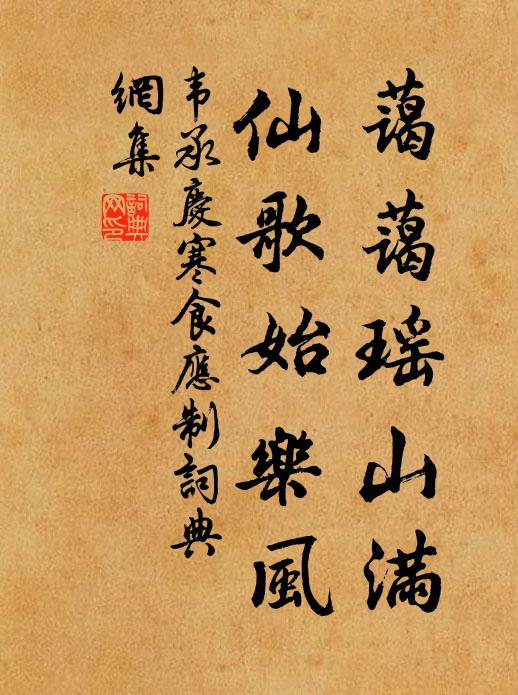 藹藹瑶山滿
仙歌始樂風
韦承慶寒食應制詞典
網集
詞典
网印